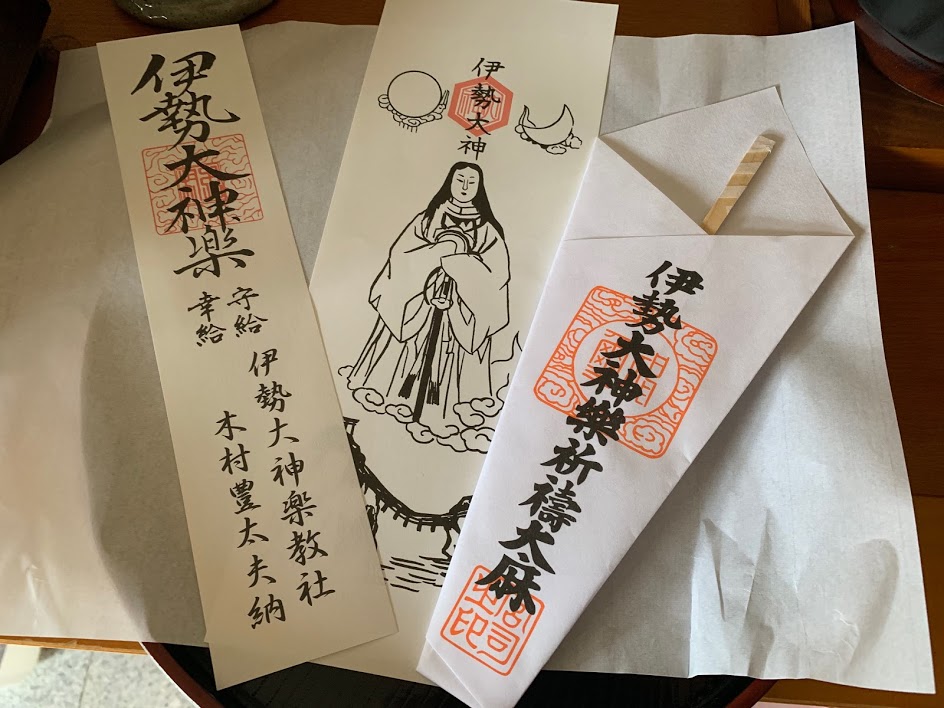 伊勢大神楽
守給
幸給
伊勢大神楽教社
木村豊太夫納
伊勢大神
伊勢大神樂祈禱大麻
宮司之印